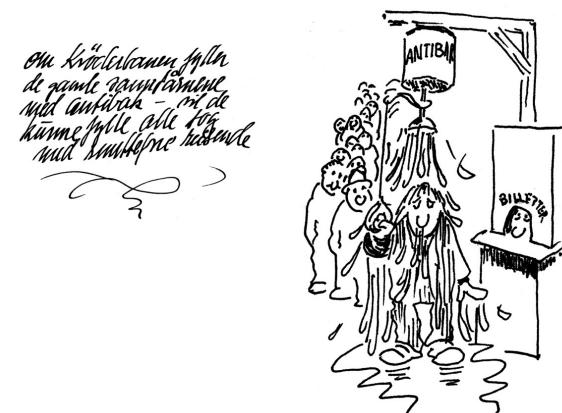 om Kröderbanen fyller
de gamle vanntårnene
med antibak – vil de
kunne fylle alle tog
med smittefrie reisende
ANTIBAK
BILLETTER